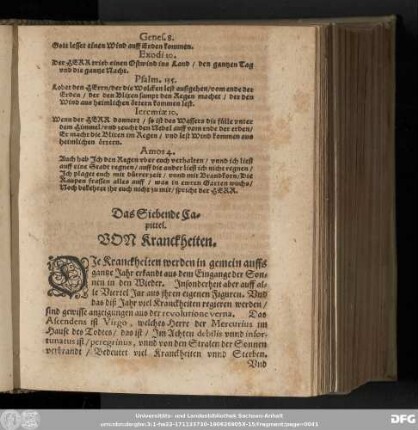 Genes. 8.
Gott lesset einen Wind auff Erden kommen.
Exodi 10.
Der HERR trieb einen Ostwind ins Land / den gantzen Tag
vnd die gantze Nacht.
Psalm. 135.
Lobet den HErrn / der die Wolcken lest auffgehen / vom ende der
Erden / der den Blitzen sampt den Regen machet / der den
Wind aus heimlichen örtern kommen lest.
Ieremiæ 10.
Wenn der HERR donnert / so ist des Wassers die fülle vnter
dem Himmel / vnd zeucht den Nebel auff vom ende der erden /
Er macht die Blitzen im Regen / vnd lest Wind kommen aus
heimlichen örtern.
Amos 4.
Auch hab Ich den Regen vber euch verhalten / vnnd ich ließ
auff eine Stadt regnen / auff die ander ließ ich nicht regnen /
Ich plaget euch mit dürrer zeit / vnnd mit Brandkorn / Die
Raupen frassen alles auff / was in ewren Garten wuchs /
Noch bekehret ihr euch nicht zu mir / spricht der HERR.
Das Siebende Ca-
pittel.
VON Kranckheiten.
DIe Kranckheiten werden in gemein auffs
gantze Jahr erkandt aus dem Eingange der Son-
nen in den Wieder. Insonderheit aber auff al-
le Viertel Jar aus ihren eigenen Figuren. Vnd
das diß Jahr viel Kranckheiten regieren werden /
sind gewisse anzeigungen aus der revolutione verna. Das
Ascendens ist Virgo, welches Herre der Mercurius im
Hause des Todtes / das ist / Im Achten debilis vnnd infor-
tunatus ist / peregrinus, vnnd von den Stralen der Sonnen
verbrandt / Bedeutet viel Kranckheiten vnnd Sterben.
Vnd
Universitäts- und Landesbibliothek Sachsen-Anhalt
DFG